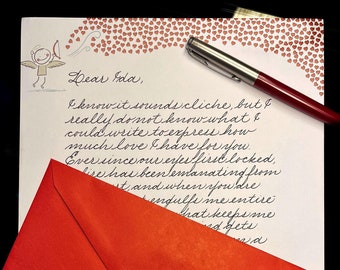 Dear Ida,
I know it sounds cliche, but I
really do not know what I
could write to express how
much love I have for you.
Ever since our eyes first locked,
fire has been emanating from
and when you are
engulfs me entire
that keeps me
gets